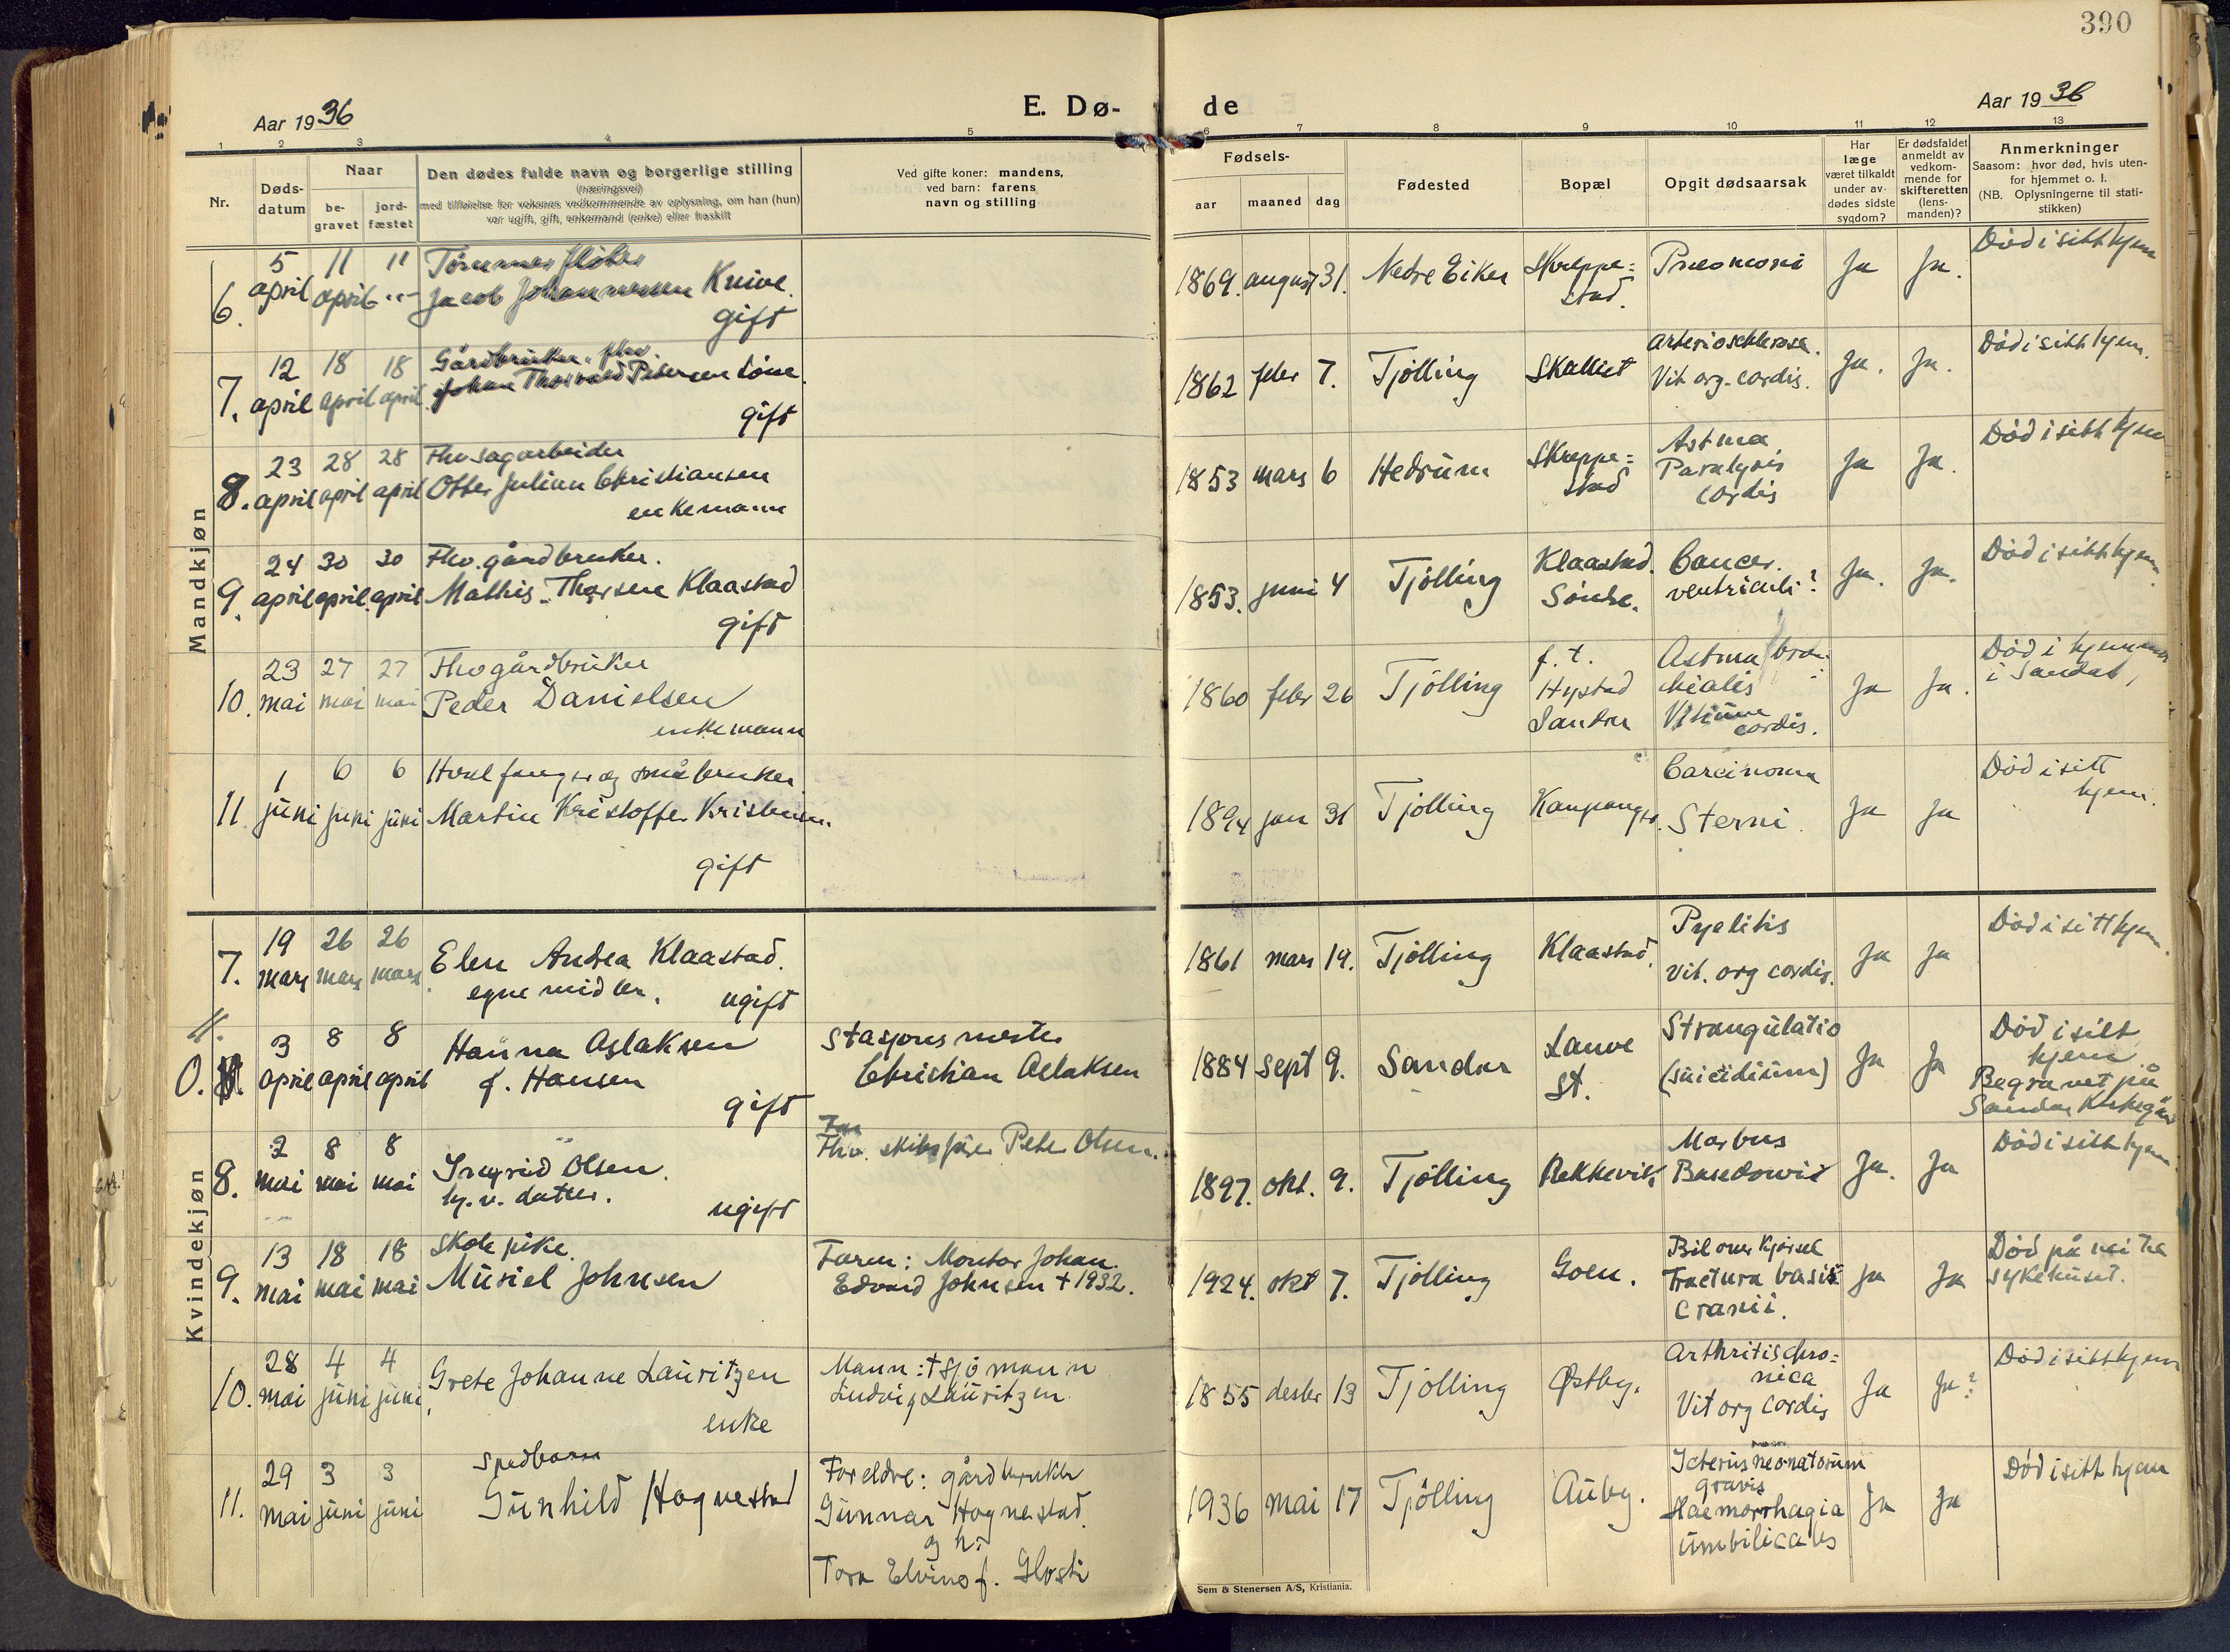 390
Aar 1936
E. Dø-
de
Aar 1936
1 2 3 4 5 6 7 8 9 10 11 12 13
Nr.
Døds-
datum
Naar
be-
gravet
jord-
fæstet
Den dødes fulde navn og borgerlige stilling
(næringsvei)
med tilføielse for voksnes vedkommende av oplysning, om han (hun)
var ugift, gift, enkemand (enke) eller fraskilt
Ved gifte koner: mandens,
ved barn: farens
navn og stilling
Fødsels-
aar maaned dag
Fødested
Bopæl
Opgit dødsaarsak
Har
læge
været tilkaldt
under av-
dødes sidste
sygdom?
Er dødsfaldet
anmeldt av
vedkom-
mende for
skifteretten
(lens-
manden)?
Anmerkninger
Saasom: hvor død, hvis uten-
for hjemmet o. l.
(NB. Oplysningerne til stati-
stikken)
Mandkjøn
6. 5 april 11 april 11
Jacob Johannessen Knive.
gift
1869. august 31. Nedre Eiker
Pneomoni Ja Ja.
Død i sitt hjem
7. 12 april 18 april 18 april
Gårdbruker, fhv
Johan Thorvald Pedersen
gift
1862 febr 7. Tjølling
Vit. org. cordis. Ja. Ja.
Død i sitt hjem.
8. 23 april 28 april 28 april
Fhv sagarbeider
Otter Julian Christiansen
enkemann
1853 mars 6 Hedrum
Skreppe=
stad
Astma
Paralysis
cordis
Ja Ja.
Død i sitt hjem
9. 24 april 30 april. 30 april
Fhv. gårdbruker.
Mathis Thorsen Klaastad
gift
1853. juni 4 Tjølling
Klaastad.
Søndre.
Cancer.
ventriculi?
Ja. Ja.
Død i sitt hjem.
10. 23 mai 27 mai 27 mai
Fhv gårdbruker
Peder Danielsen
enkemann
1860 febr 26 Tjølling
f. t.
Hystad
Sandar
Astma bron-
chialis
Vitium
cordis.
Ja Ja.
Død i hjemmet
i Sandar
11 1 juni 6 juni 6 juni
Hvalfanger og småbruker
Martin Kristoffer Kristensen
gift
1894 jan 31 Tjølling Kaupang
Carcinoma
Sterni.
Ja Ja
Død i sitt
hjem.
Kvindekjøn
7. 19 mars 26 mars 26 mars
Elen Andrea Klaastad.
egne midler. ugift
1861 mars 19. Tjølling Klaastad.
Pyelitis
vit. org cordis.
Ja Ja
Død i sitt hjem.
0. 3 april 8 april 8 april
Hanna Aslaksen
f. Hansen
gift
Stasjonsmester
Christian Aslaksen
1884 sept 9. Sandar
Lauve
St.
Strangulatio
(suicidium)
Ja Ja
Død i sitt
hjem
Begravet på
Sandar Kirkegård
8. 2 mai 8 mai 8 mai
Ingrid Olsen.
hj. v. datter.
ugift
Far
Fhv. skibsfører Peter Olsen.
1897. okt. 9. Tjølling Rekkevik
Morbus
Basedowii
Ja. Ja
Død i sitt hjem
9. 13 mai 18 mai 18 mai
Skolepike.
Musiel Johnsen
Faren: Montør Johan.
Edvard Johnsen † 1932.
1924. okt 7. Tjølling Goen.
Bil overkjørsel
Fractura basis
cranii.
Ja Ja
Død på vei til
sykehuset.
10. 28 mai 4 juni 4 juni
Grete Johanne Lauritzen
enke
Mann: † sjømann
Ludvig Lauritzen
1855 desbr 13 Tjølling Østby.
Arthritis chro=
nica
Vit org cordis
Ja Ja?
Død i sitt hjem
11. 29 mai 3 juni 3 juni
Spedbarn
Gunhild Hognestad
Foreldre: gårdbruker
Gunnar Hognestad
og h.
Tora Elvine f.
1936 mai 17 Tjølling Auby.
Icterus neonatorum
gravis
Haemorrhagia
umbilicalis
Ja Ja
Død i sitt hjem
Sem & Stenersen A/S, Kristiania.